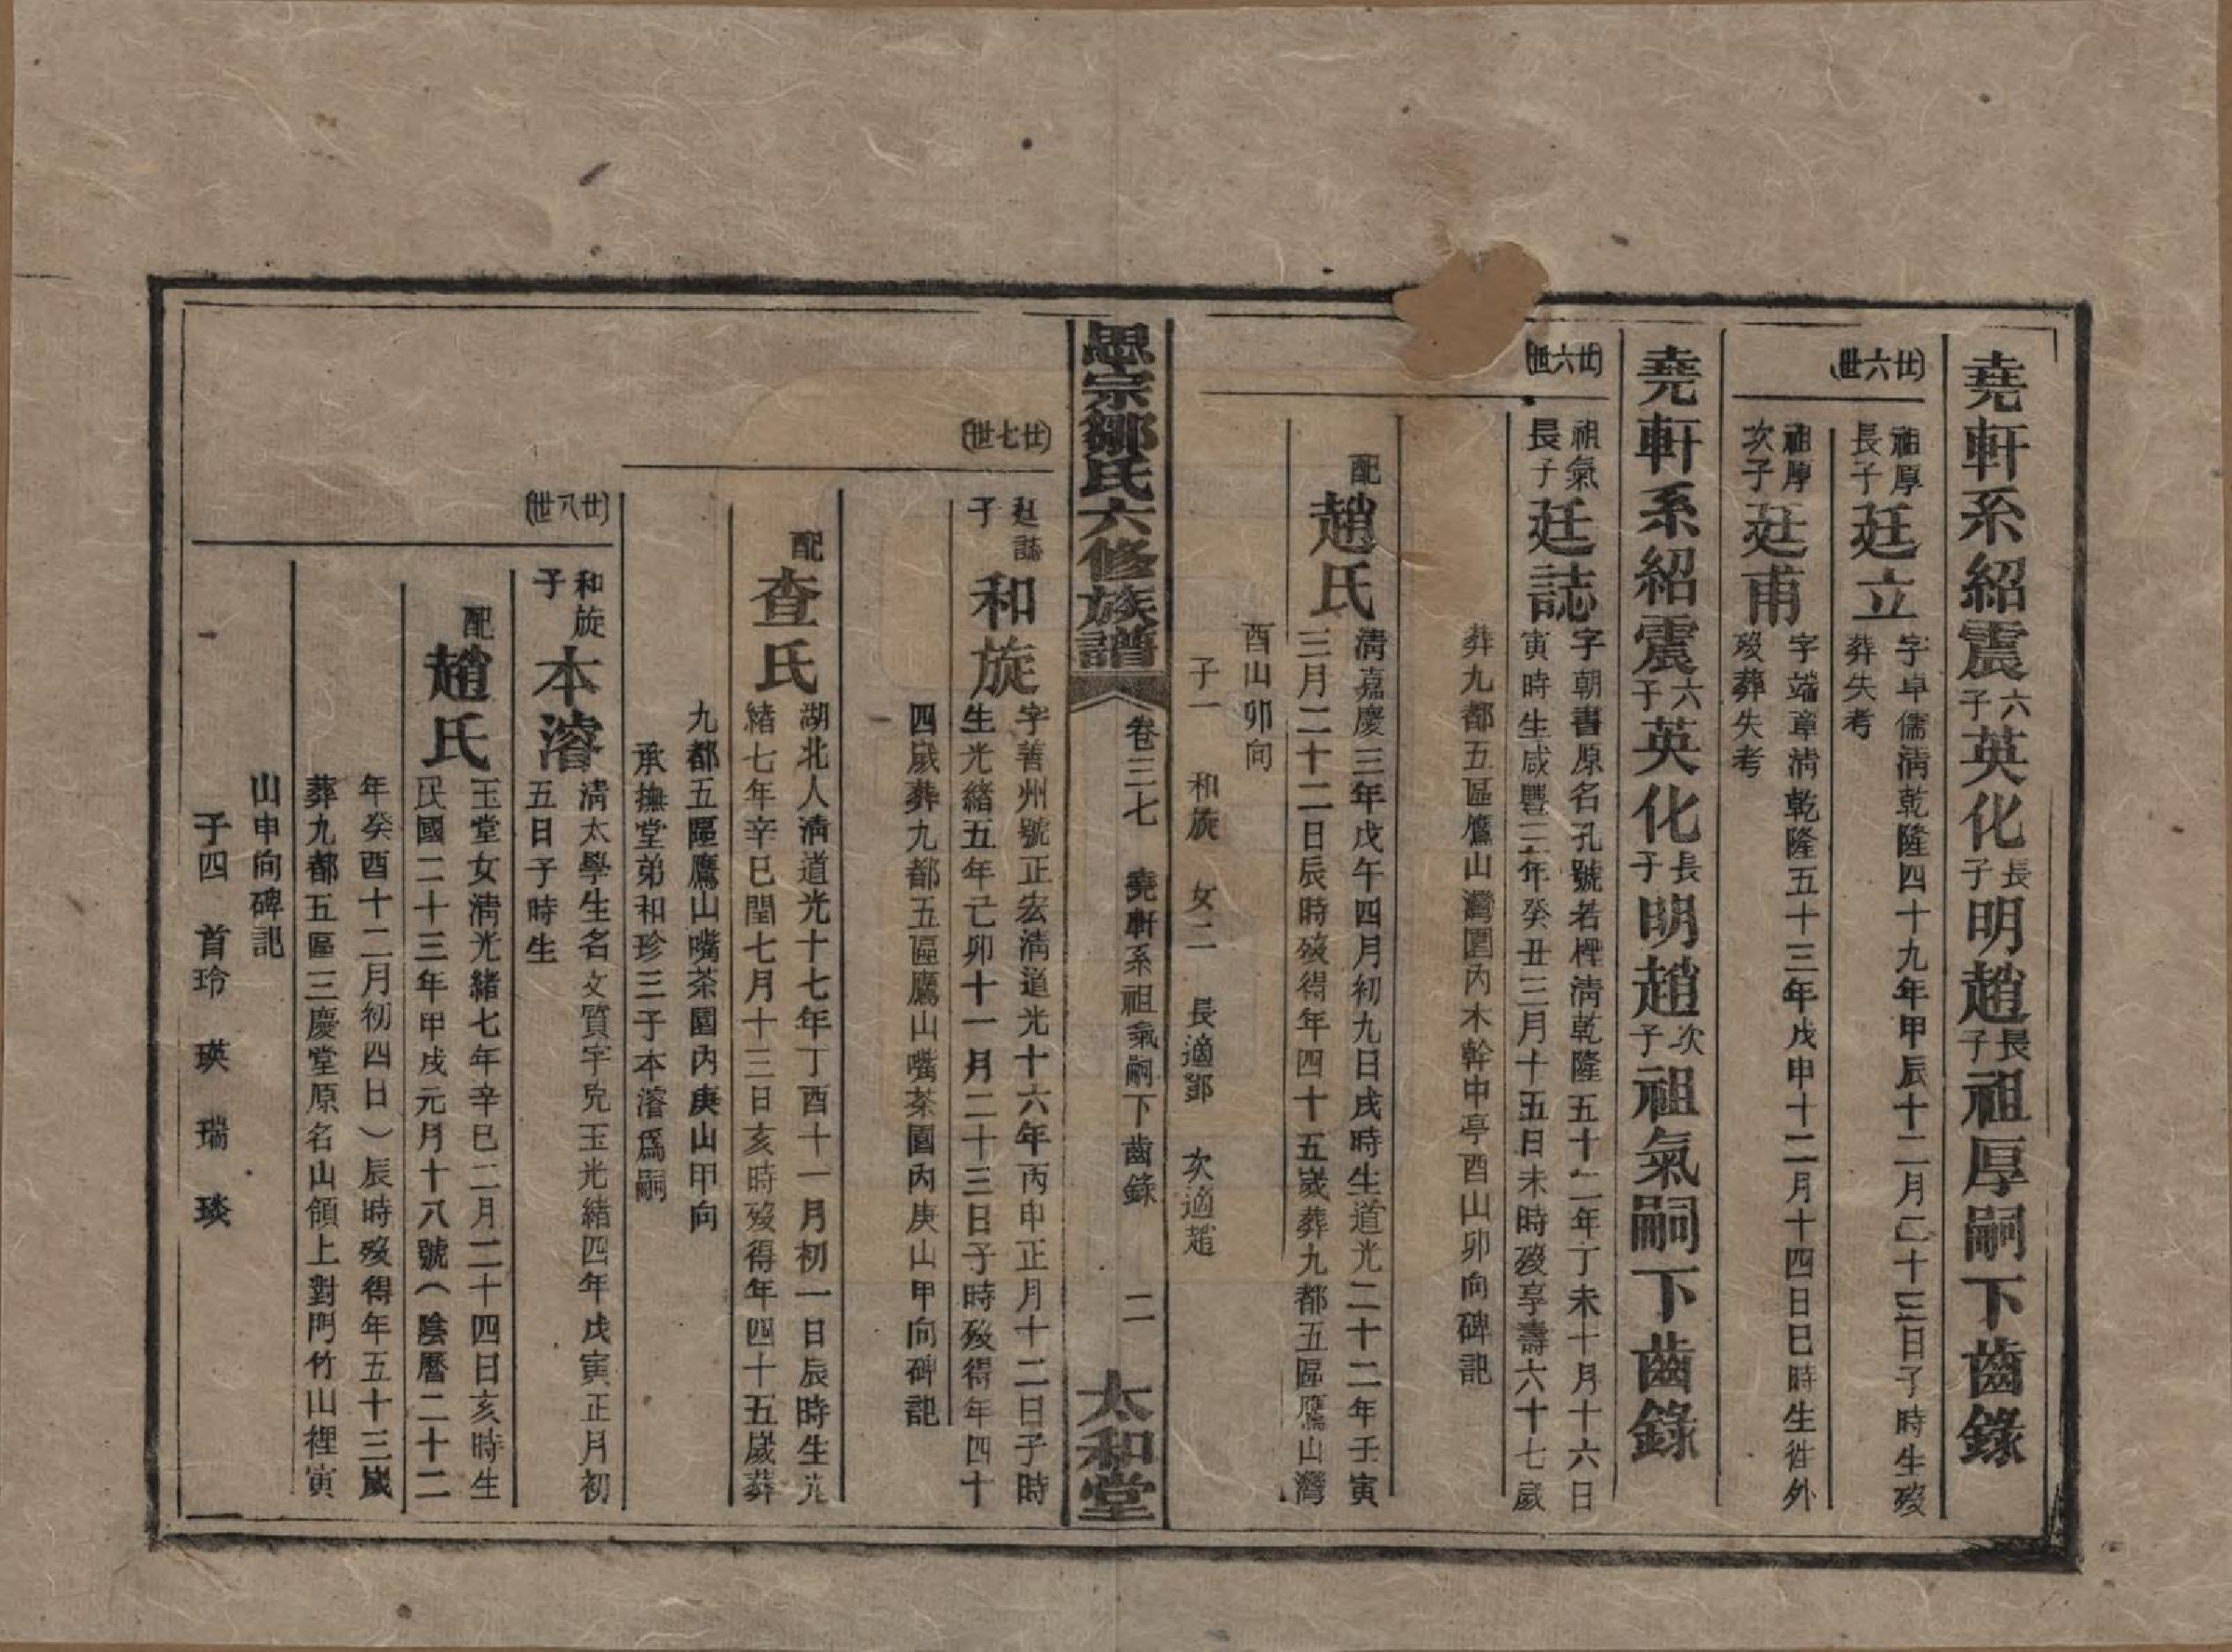 堯軒系紹震六子英化長子明趙長子祖厚嗣下齒錄
(廿六世)
祖厚長子廷立字卓儒淸乾隆四十九年甲辰十二月二十三日子時生歿
葬失考
祖厚次子廷甫字端章淸乾隆五十三年戊申十二月十四日巳時生往外
歿葬失考
堯軒系紹震六子英化長子明趙次子祖氣嗣下齒錄
(廿六世)
祖氣長子廷誌字朝書原名孔號若樫淸乾隆五十二年丁未十月十六日
寅時生咸豐三年癸丑三月十五日未時歿享壽六十七歲
葬九都五區鷹山灣園內木幹中亭酉山卯向碑記
配趙氏淸嘉慶三年戊午四月初九日戌時生道光二十二年壬寅
三月二十二日辰時歿得年四十五歲葬九都五區鷹山灣
酉山卯向
子一 和旋 女二 長適鄧 次適趙
思宗鄒氏六修族譜 卷三七 堯軒系祖氣嗣下齒錄 二 太和堂
(廿七世)
廷誌子和旋字善州號正宏淸道光十六年丙申正月十二日子時
生光緒五年己卯十一月二十三日子時歿得年四十
四歲葬九都五區鷹山嘴茶園內庚山甲向碑記
配查氏湖北人淸道光十七年丁酉十一月初一日辰時生光
緒七年辛巳閏七月十三日亥時歿得年四十五歲葬
九都五區鷹山嘴茶園內庚山甲向
承撫堂弟和珍三子本濬爲嗣
(廿八世)
和旋子本濬淸太學生名文質字兌玉光緒四年戊寅正月初
五日子時生
配趙氏玉堂女淸光緒七年辛巳二月二十四日亥時生
民國二十三年甲戌元月十八號(陰曆二十二
年癸酉十二月初四日)辰時歿得年五十三歲
葬九都五區三慶堂原名山領上對門竹山裡寅
山申向碑記
子四 首玲 瑛 瑞 琰